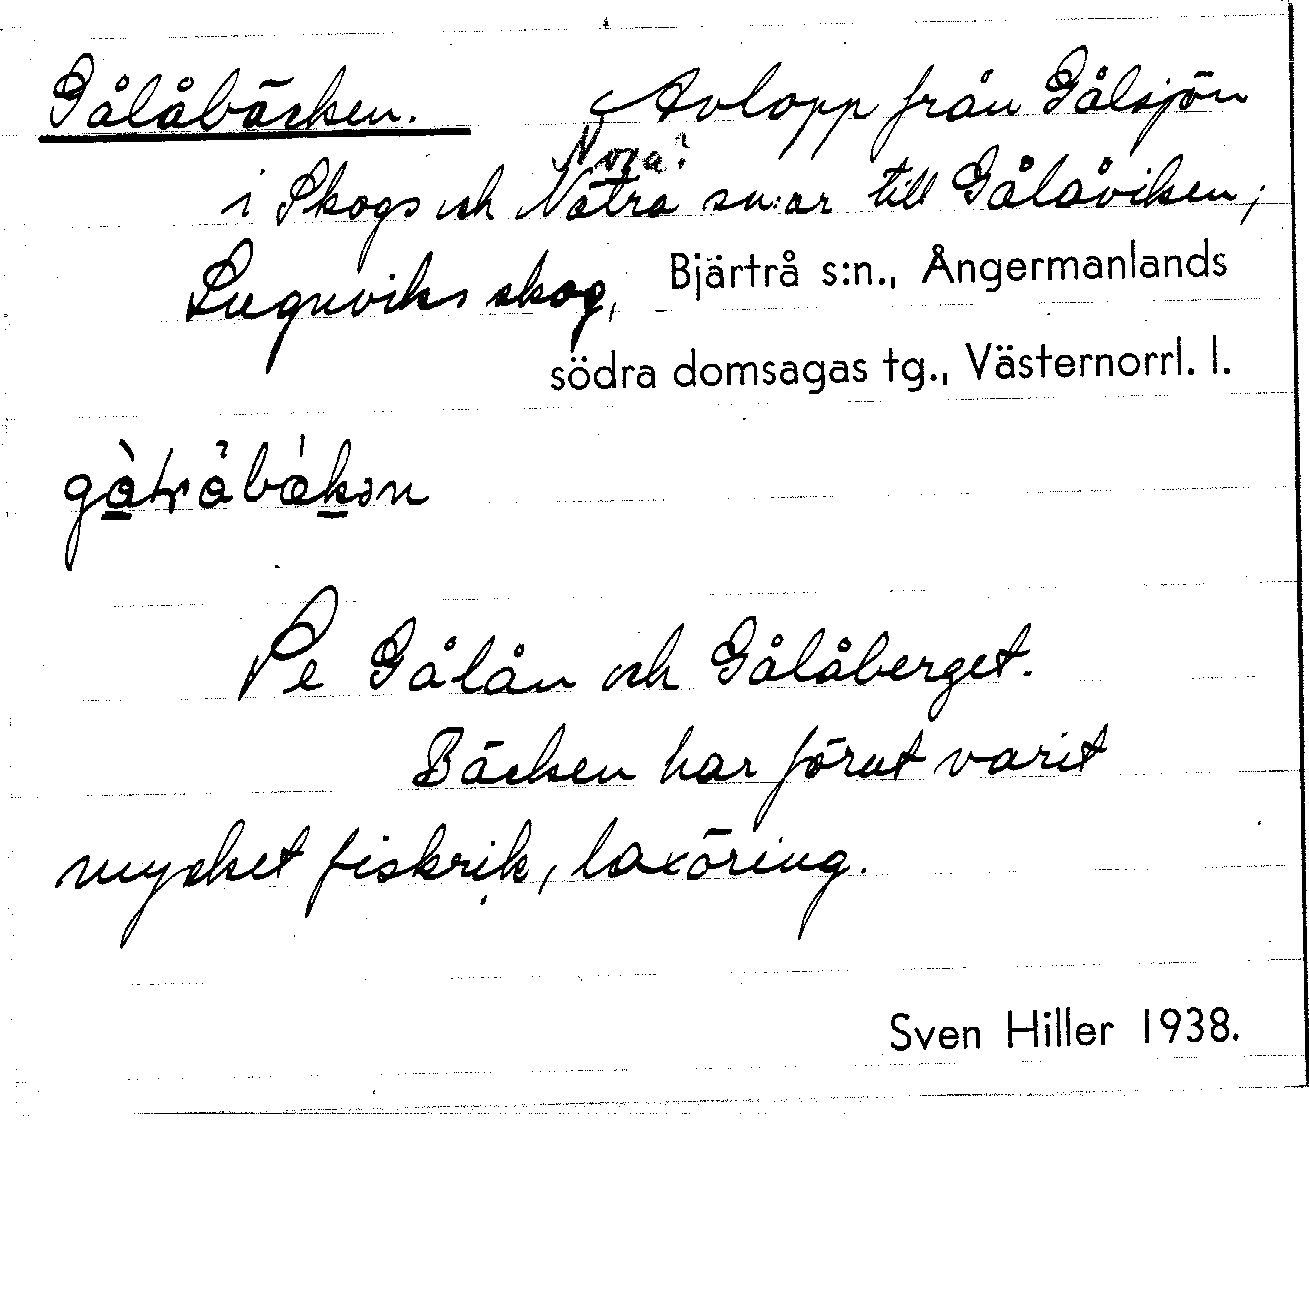 Gålåbäcken. Avlopp från Gålsjön
Nora?
i Skogs och Nätra sn:ar till Gålåviken,
Lugnviks skog, Bjärtrå s:n., Ångermanlands
södra domsagas tg., Västernorrl. l.
Pe Gålån och Gålåberget.
Bäcken har förut varit
mycket fiskrik, laxöring.
Sven Hiller 1938.